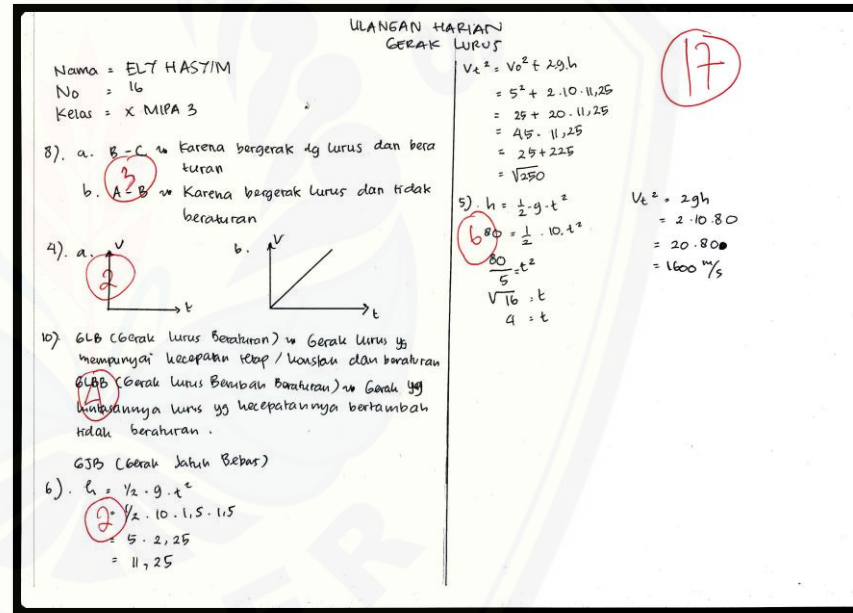 ULANGAN HARIAN
GERAK LURUS
Nama = ELY HASYIM
No : 16
Kelas = X MIPA 3
8). a. B-C ⇝ Karena bergerak dg lurus dan bera
turan
3
b. A-B ⇝ Karena bergerak lurus dan tidak
beraturan
4). a. V
t
2
b. V
t
10) GLB (Gerak lurus Beraturan) ⇝ Gerak lurus yg
mempunyai kecepatan tetap / konstan dan beraturan
GLBB (Gerak lurus Berubah Beraturan) ⇝ Gerak yg
4
lintasannya lurus yg kecepatannya bertambah
tidak beraturan.
GJB (Gerak Jatuh Bebas)
6). h = 1/2 . g . t²
2
= 1/2 . 10 . 1,5 . 1,5
= 5 . 2,25
= 11,25
17
Vt² = Vo² + 2.g.h
= 5² + 2.10.11,25
= 25 + 20.11,25
= 45. 11,25
= 25 + 225
= √250
5). h = 1/2 . g . t²
6
80 = 1/2 . 10 . t²
80/5 = t²
√16 = t
4 = t
Vt² = 2gh
= 2.10.80
= 20.80
= 1600 m/s